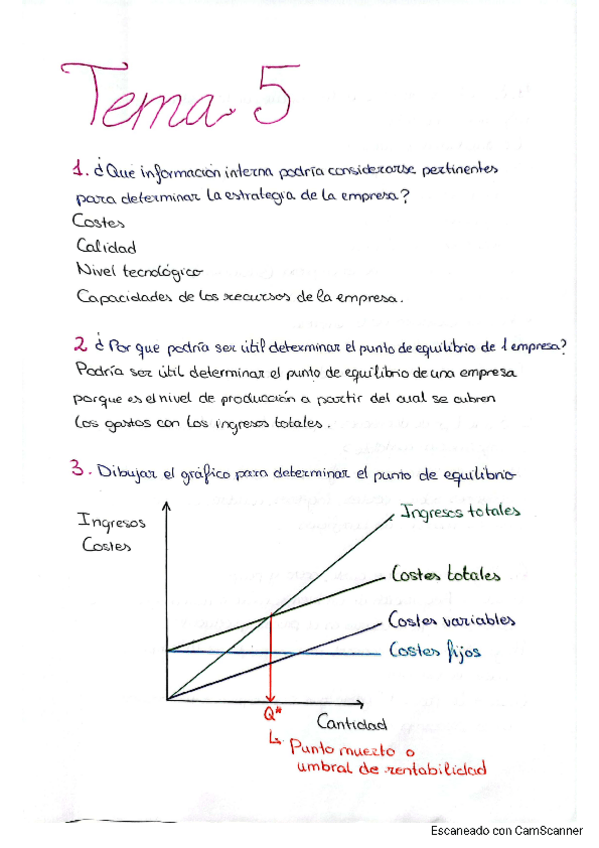 Tema 5
1. ¿Que información interna podría considerarse pertinentes
para determinar la estrategia de la empresa?
Costes
Calidad
Nivel tecnológico
Capacidades de los recursos de la empresa.
2 ¿Por que podría ser útil determinar el punto de equilibrio de 1 empresa?
Podría ser útil determinar el punto de equilibrio de una empresa
porque es el nivel de producción a partir del cual se cubren
los gastos con los ingresos totales.
3. Dibujar el gráfico para determinar el punto de equilibrio
Ingresos
Costes
Ingresos totales
Costes totales
Costes variables
Costes fijos
Q*
Cantidad
Punto muerto o
umbral de rentabilidad
Escaneado con CamScanner